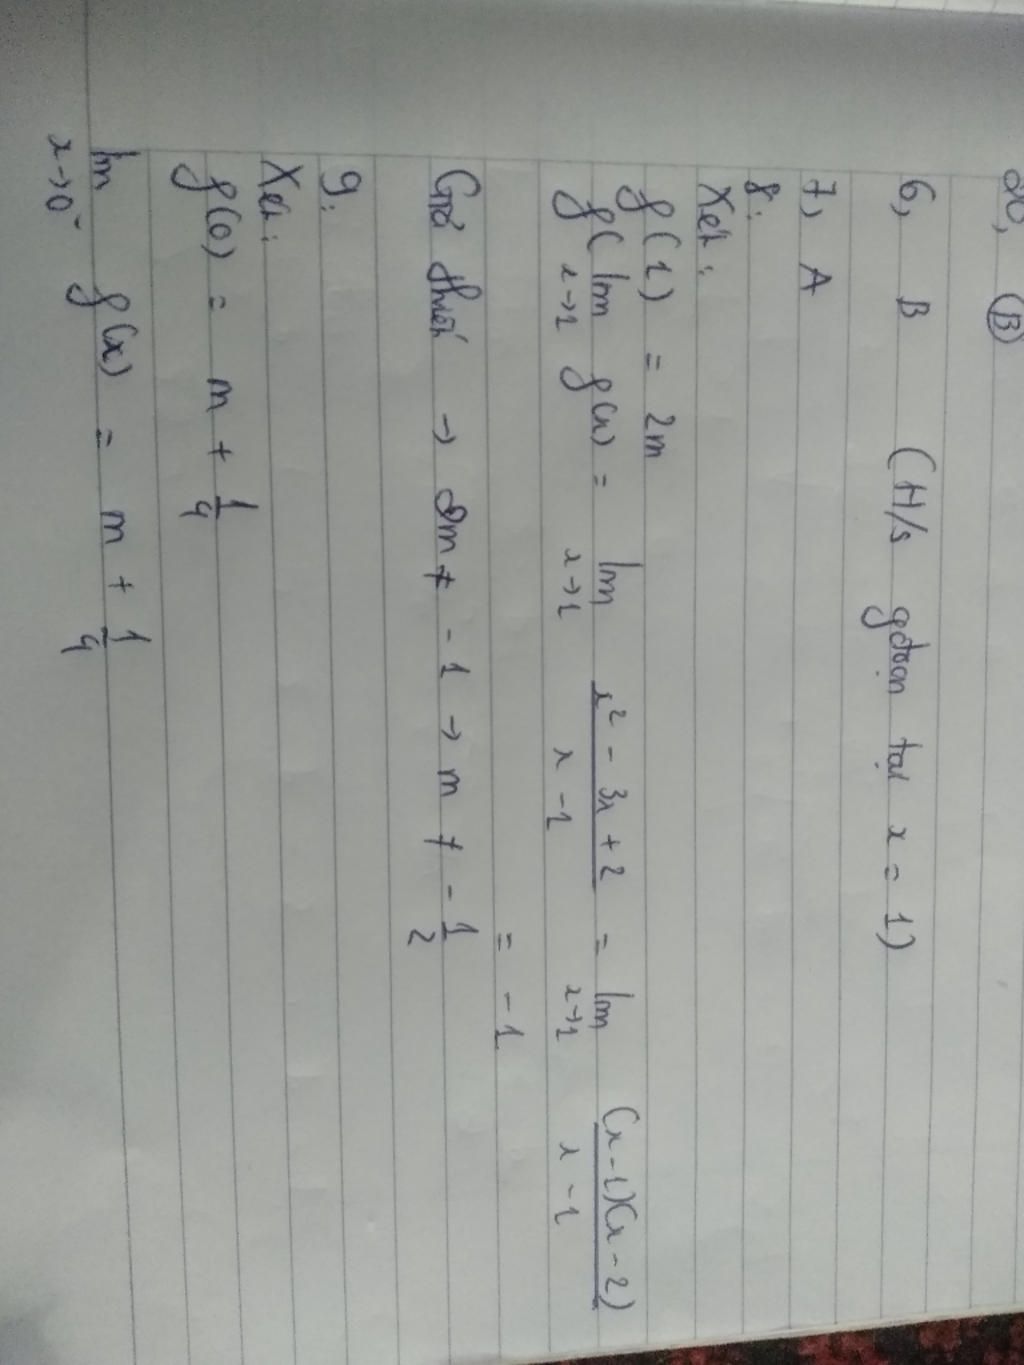 (B)
6, B (H/s gđoạn tại x = 1)
7, A
8:
Xét:
f(1) = 2m
f( lim x→1 f(x) = lim x→1 x² - 3x + 2 / x - 1 = lim x→1 (x-1)(x-2) / x - 1
= -1
Giả thiết → 2m ≠ -1 → m ≠ -1/2
9:
Xét:
f(0) = m + 1/4
lim x→0⁻ f(x) = m + 1/4